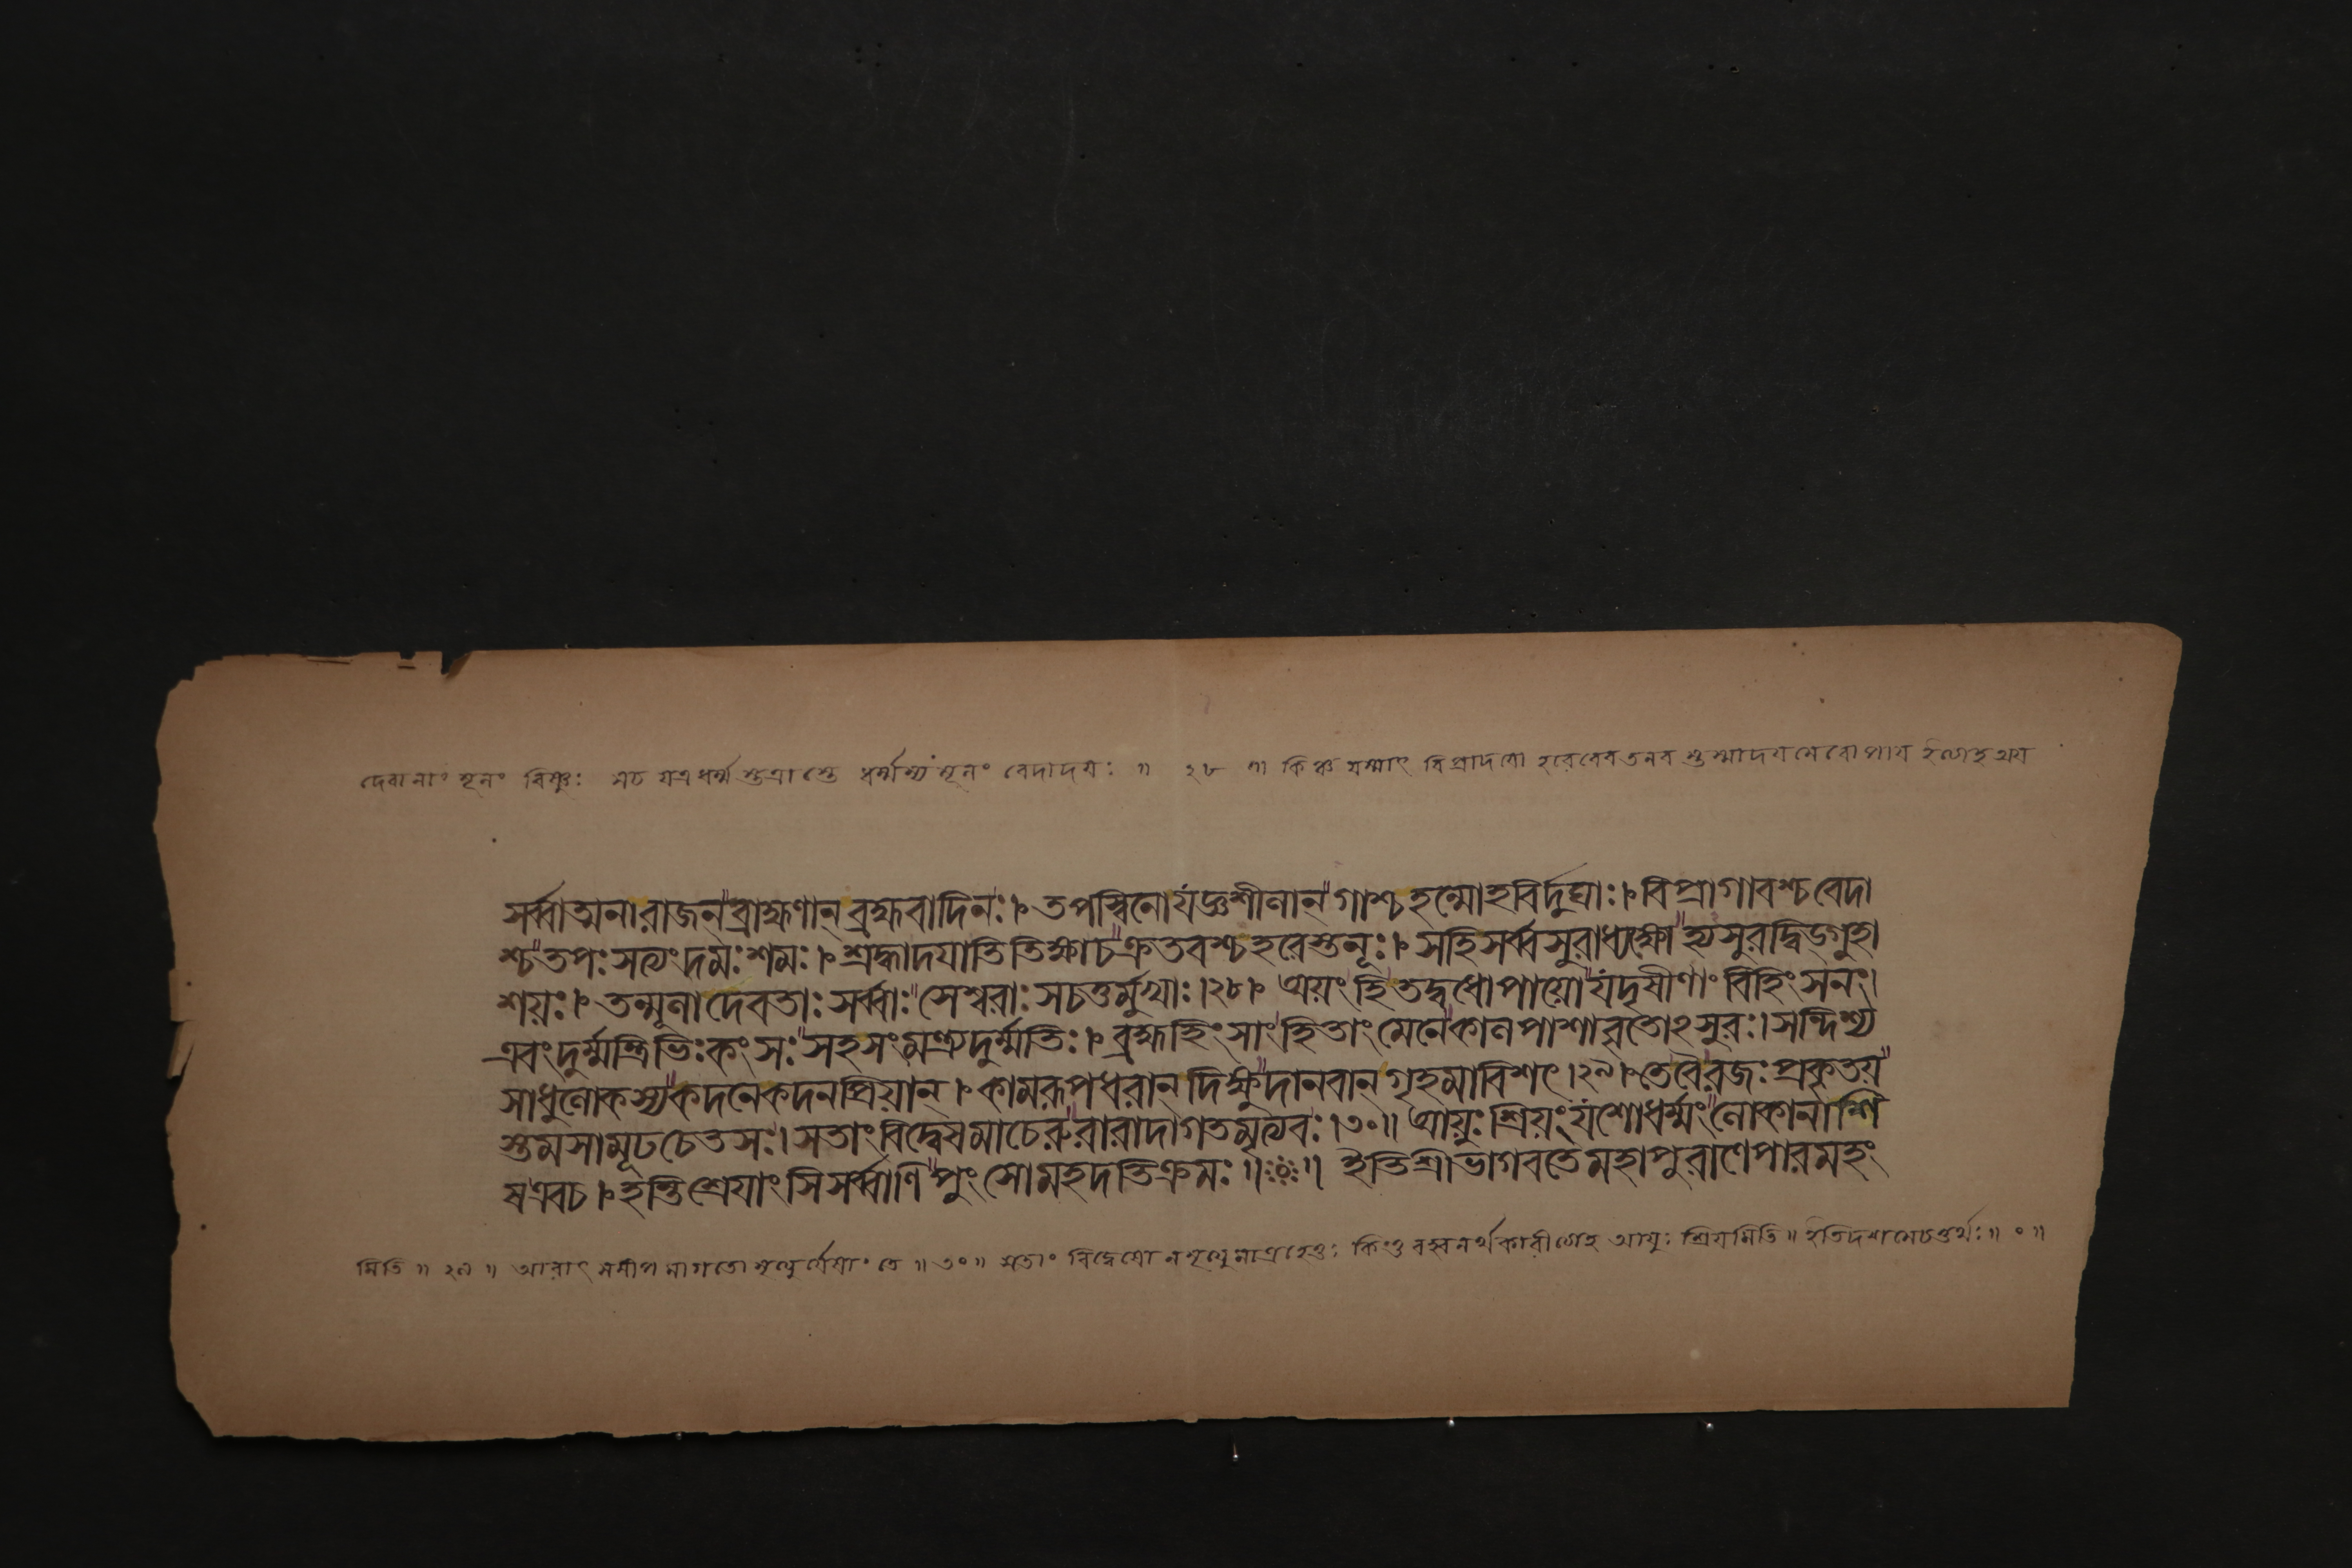 দেবানাং মূলং বিষ্ণুঃ সচ যত্রধর্ম্মস্তত্রাস্তে ধর্ম্মস্য মূলং বেদাদয়ঃ ॥ ২৮ ॥ কিঞ্চ যস্মাৎ বিপ্রাদযো হরেরেবতনব স্তস্মাদযমেবোপায ইত্যাহ অয
সর্ব্বাত্মনারাজন্ব্রাহ্মণান্ ব্রহ্মবাদিনঃ।তপস্বিনোযজ্ঞশীলান্গাশ্চহন্মোহবির্দুঘাঃ।বিপ্রাগাবশ্চবেদা
শ্চতপঃসত্যংদমঃশমঃ।শ্রদ্ধাদযাতিতিক্ষাচক্রতবশ্চহরেস্তনূঃ।সহিসর্ব্বসুরাধ্যক্ষোহ্যসুরদ্বিড্গুহা
শয়ঃ।তন্মূলাদেবতাঃসর্ব্বাঃসেশ্বরাঃসচতুর্মুখাঃ।২৮।অয়ংহিতদ্বধোপায়োযদৃষীণাংবিহিংসনং।
এবংদুর্ম্মন্ত্রিভিঃকংসঃসহসংমন্ত্র্যদুর্ম্মতিঃ।ব্রহ্মহিংসাংহিতাংমেনেকালপাশাবৃতোঽসুরঃ।সন্দিশ্য
সাধুলোকস্যকদনেকদনপ্রিয়ান্।কামরূপধরান্ দিক্ষুদানবান্ গৃহমাবিশৎ।২৯।তেবৈরজঃপ্রকৃতয়
স্তমসামূঢচেতসঃ।সতাংবিদ্বেষমাচেরুরারাদাগতমৃত্যবঃ।৩০॥ আয়ুঃশ্রিয়ংযশোধর্ম্মংলোকানাশি
ষএবচ।হন্তিশ্রেযাংসিসর্ব্বাণিপুংসোমহদতিক্রমঃ॥ ইতিশ্রীভাগবতেমহাপুরাণেপারমহং
মিতি ॥ ২৯ ॥ আরাৎ সমীপ মাগতো মৃত্যুর্যেষাং তে ॥ ৩০ ॥ সতাং বিদ্বেষো ন মৃত্যুমাত্রহেতুঃ কিন্তু বহ্বনর্থকারীত্যাহ আয়ুঃ শ্রিযমিতি ॥ ইতিদশমেচতুর্থঃ ॥ ০ ॥